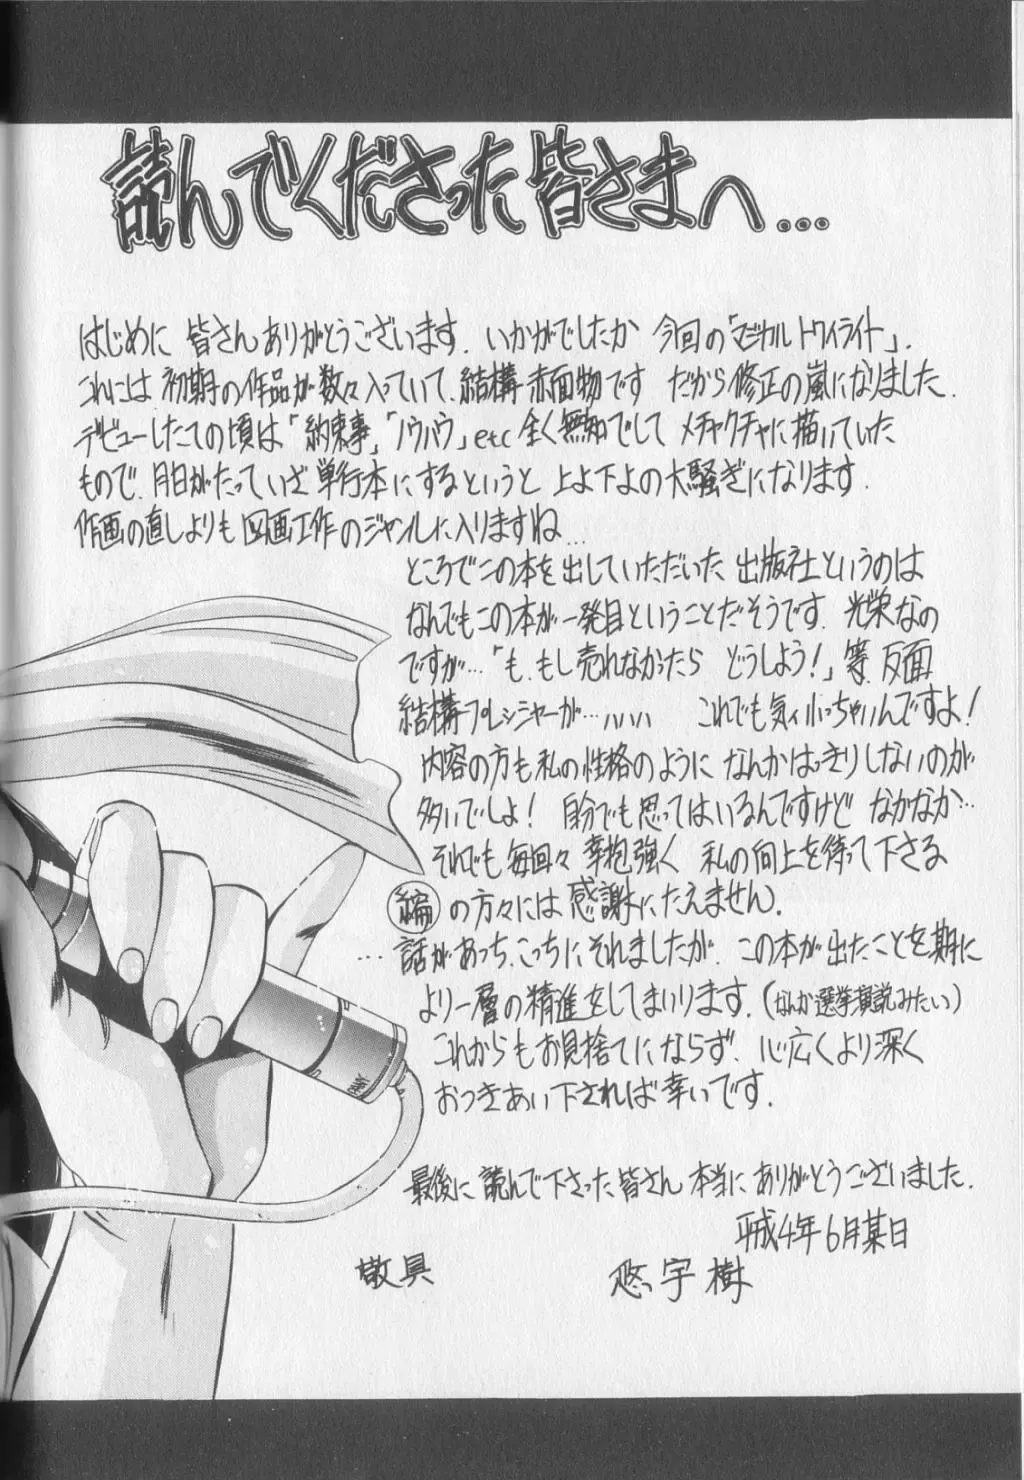 読んでくださった皆さまへ...
はじめに 皆さんありがとうございます. いかがでしたか 今回の「マジカルトワイライト」.
これには 初期の作品が数々入っていて、結構赤面物です だから修正の嵐になりました.
デビューしたての頃は「約束事」,「ノウハウ」etc 全く無知でして メチャクチャに描いていた
もので、月日がたっていざ単行本にするというと 上よ下よの大騒ぎになります.
作画の直しよりも 図画工作のジャンルに入りますね...
ところでこの本を出していただいた 出版社というのは
なんでもこの本が一発目ということだそうです. 光栄なの
ですが…「も、もし売れなかったら どうしよう!」等、反面
結構プレシャーが… ハハハ これでも気ィ小っちゃいんですよ!
内容の方も私の性格のように なんかはっきりしないのが
多いでしよ! 自分でも思ってはいるんですけど なかなか…
それでも毎回々 辛抱強く 私の向上を待って下さる
編の方々には感謝にたえません.
…話があっち、こっちにそれましたが、この本が出たことを期に
より一層の精進をしてまいります.(なんか選挙演説みたい)
これからもお見捨てにならず、心広くより深く
おつきあい下されば幸いです.
最後に 読んで下さった皆さん 本当にありがとうございました.
平成4年6月某日
敬具 悠宇樹